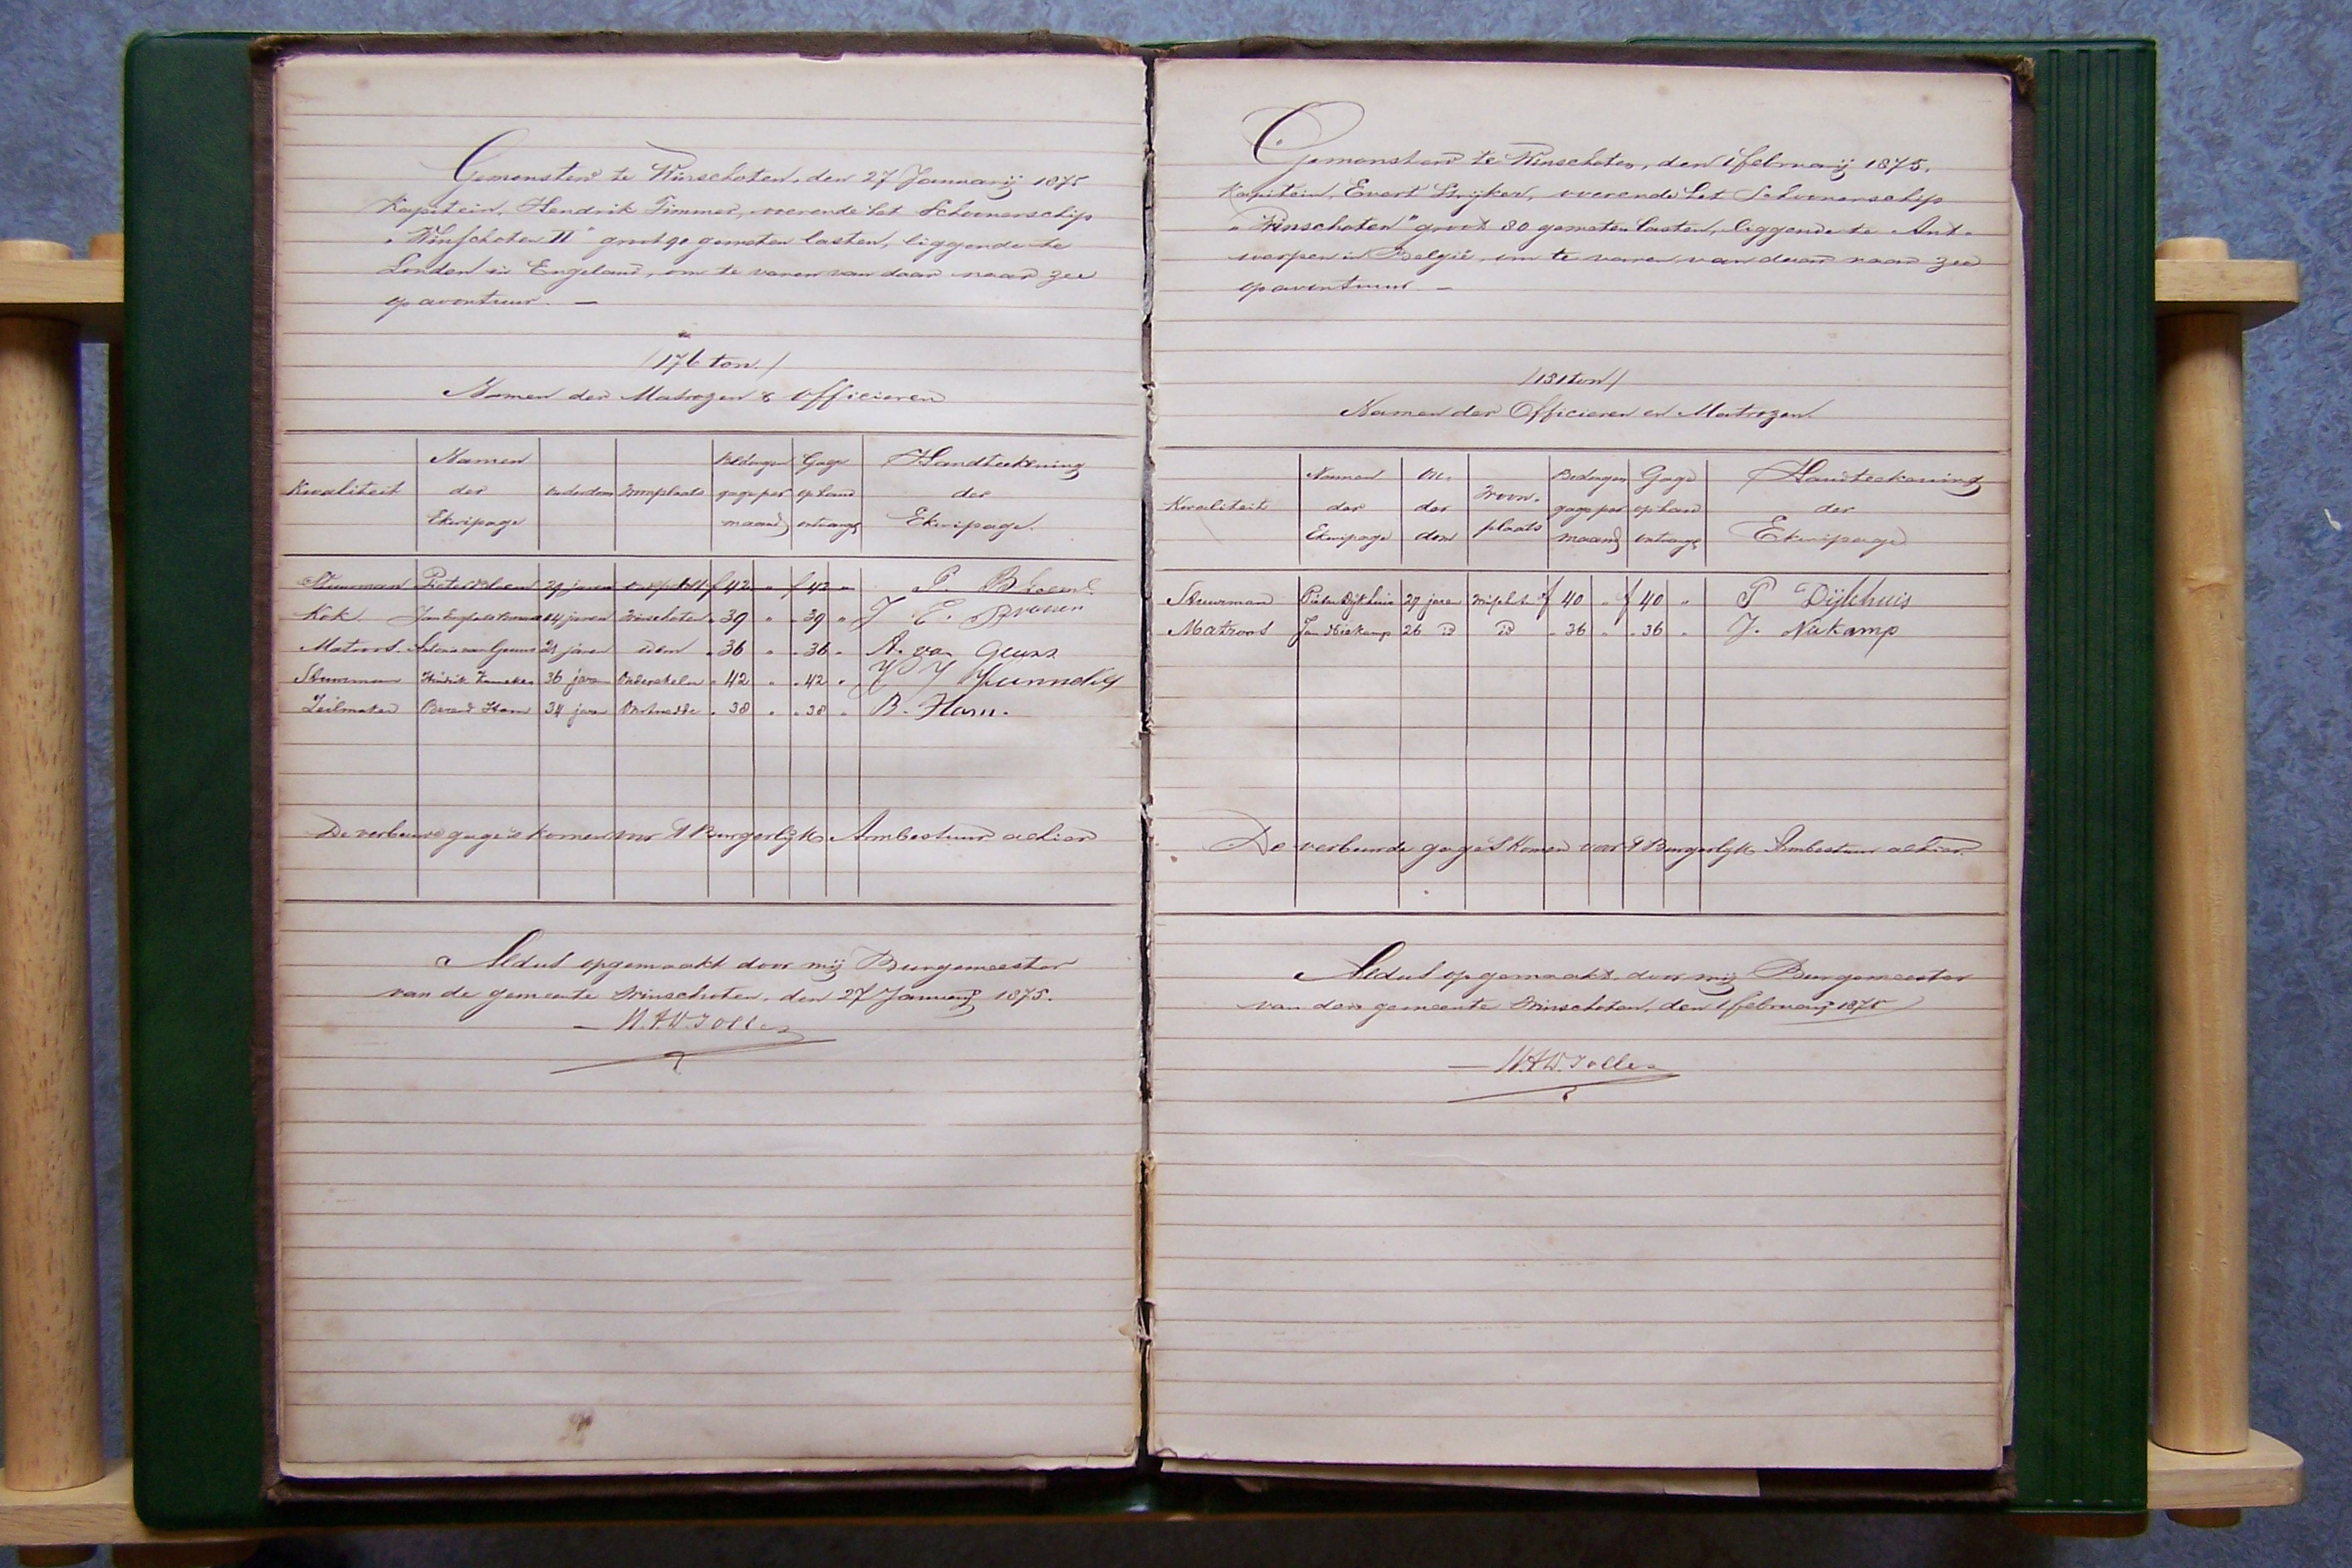 Gemonsterd te Winschoten, den 27 Januarij 1875
Kapitein, Hendrik Timmer, voerende het Schoonerschip
"Winschoten II" groot 90 gemeten lasten, liggende te
Londen in Engeland, om te varen van daar naar zee
op avontuur. —
/176 ton./
Namen der Matrozen & Officieren
Kwaliteit Namen der Ekwipage Ouderdom Woonplaats Bedongen gage per maand Gage op hand ontvangen Handteekening der Ekwipage.
Stuurman Pieter 29 jaren f 42 " f 42 " P.
Kok Jan 14 jaren Winschoten " 39 " " 39 " J. E. Brouwer
Matroos. van Geuns 21 jaren idem " 36 " " 36 " A. van Geuns
Stuurman Hindrik 36 jaren " 42 " " 42 "
Zeilmaker Berend Ham 34 jaren " 38 " " 38 " B. Ham.
De verbeurde gage's komen voor 't Burgerlijk Armbestuur alhier
Aldus opgemaakt door mij Burgemeester
van de gemeente Winschoten, den 27 Januarij 1875.
Gemonsterd te Winschoten, den 1 februarij 1875.
Kapitein, Evert Strijker, voerende het Schoonerschip
"Winschoten" groot 80 gemeten lasten, liggende te Ant-
werpen in België, om te varen van daar naar zee
op avontuur. —
/151 ton/
Namen der Officieren en Matrozen.
Kwaliteit Namen der Ekwipage Ou- der dom Woon- plaats Bedongen gage per maand Gage op hand ontvangen Handteekening der Ekwipage
Stuurman Pieter Dijkhuis 27 jaren Winschoten f 40 " f 40 " P Dijkhuis
Matroos Jan Niekamp 26 id id " 36 " " 36 " J. Niekamp
De verbeurde gage's komen voor 't Burgerlijk Armbestuur alhier.
Aldus opgemaakt door mij Burgemeester
van der gemeente Winschoten, den 1 februarij 1875